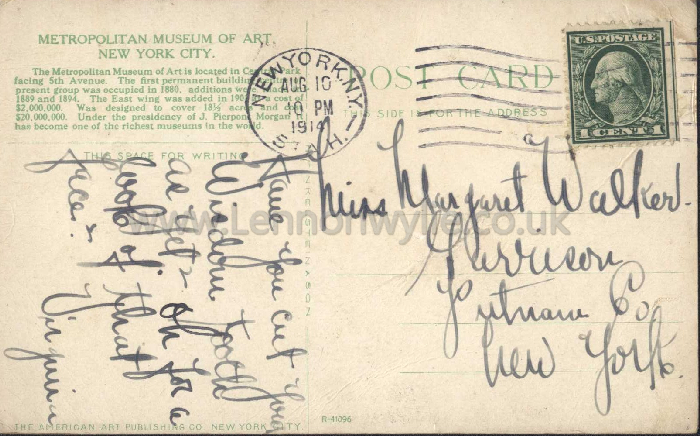 METROPOLITAN MUSEUM OF ART,
NEW YORK CITY.
The Metropolitan Museum of Art is located in Park
facing 5th Avenue. The first permanent building
present group was occupied in 1880, additions
1889 and 1894. The East wing was added in cost of
$2,000,000. designed to cover 18½ acres and
$20,000,000. Under the presidency of J. Pierpont Morgan
has become one of the richest museums in the world.
POST CARD
THIS SIDE IS FOR THE ADDRESS
NEW YORK, N.Y.
AUG 10
6 PM
1914
STA. H.
U.S. POSTAGE
1 CENT 1
THIS SPACE FOR WRITING
Have you cut your
Wisdom tooth
as yet? Oh for a
look of that
face?
Virginia
Miss Margaret Walker.
Garrison
Putnam Co.
New York.
www.Lennonwylie.co.uk
THE AMERICAN ART PUBLISHING CO. NEW YORK CITY.
R-41096